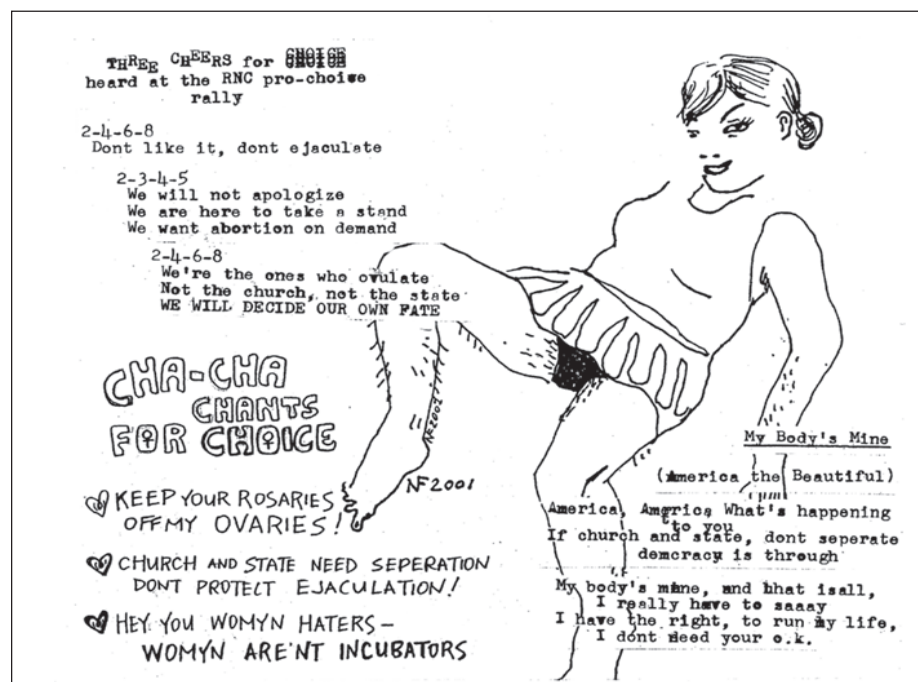 THREE CHEERS for CHOICE
heard at the RNC pro-choice
rally
2-4-6-8
Dont like it, dont ejaculate
2-3-4-5
We will not apologize
We are here to take a stand
We want abortion on demand
2-4-6-8
We're the ones who ovulate
Not the church, not the state
WE WILL DECIDE OUR OWN FATE
CHA-CHA
CHANTS
FOR CHOICE
KEEP YOUR ROSARIES
OFF MY OVARIES!
CHURCH AND STATE NEED SEPERATION
DONT PROTECT EJACULATION!
HEY YOU WOMYN HATERS-
WOMYN ARE'NT INCUBATORS
NF2001
NF 2001
My Body's Mine
(America the Beautiful)
America, America What's happening
to you
If church and state, dont seperate
demcracy is through
My body's mine, and that isall,
I really have to saaay
I have the right, to run my life,
I dont need your o.k.